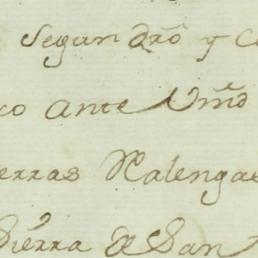 Segun dro y C
co ante Vmd
erras Realengas
Sierra de San